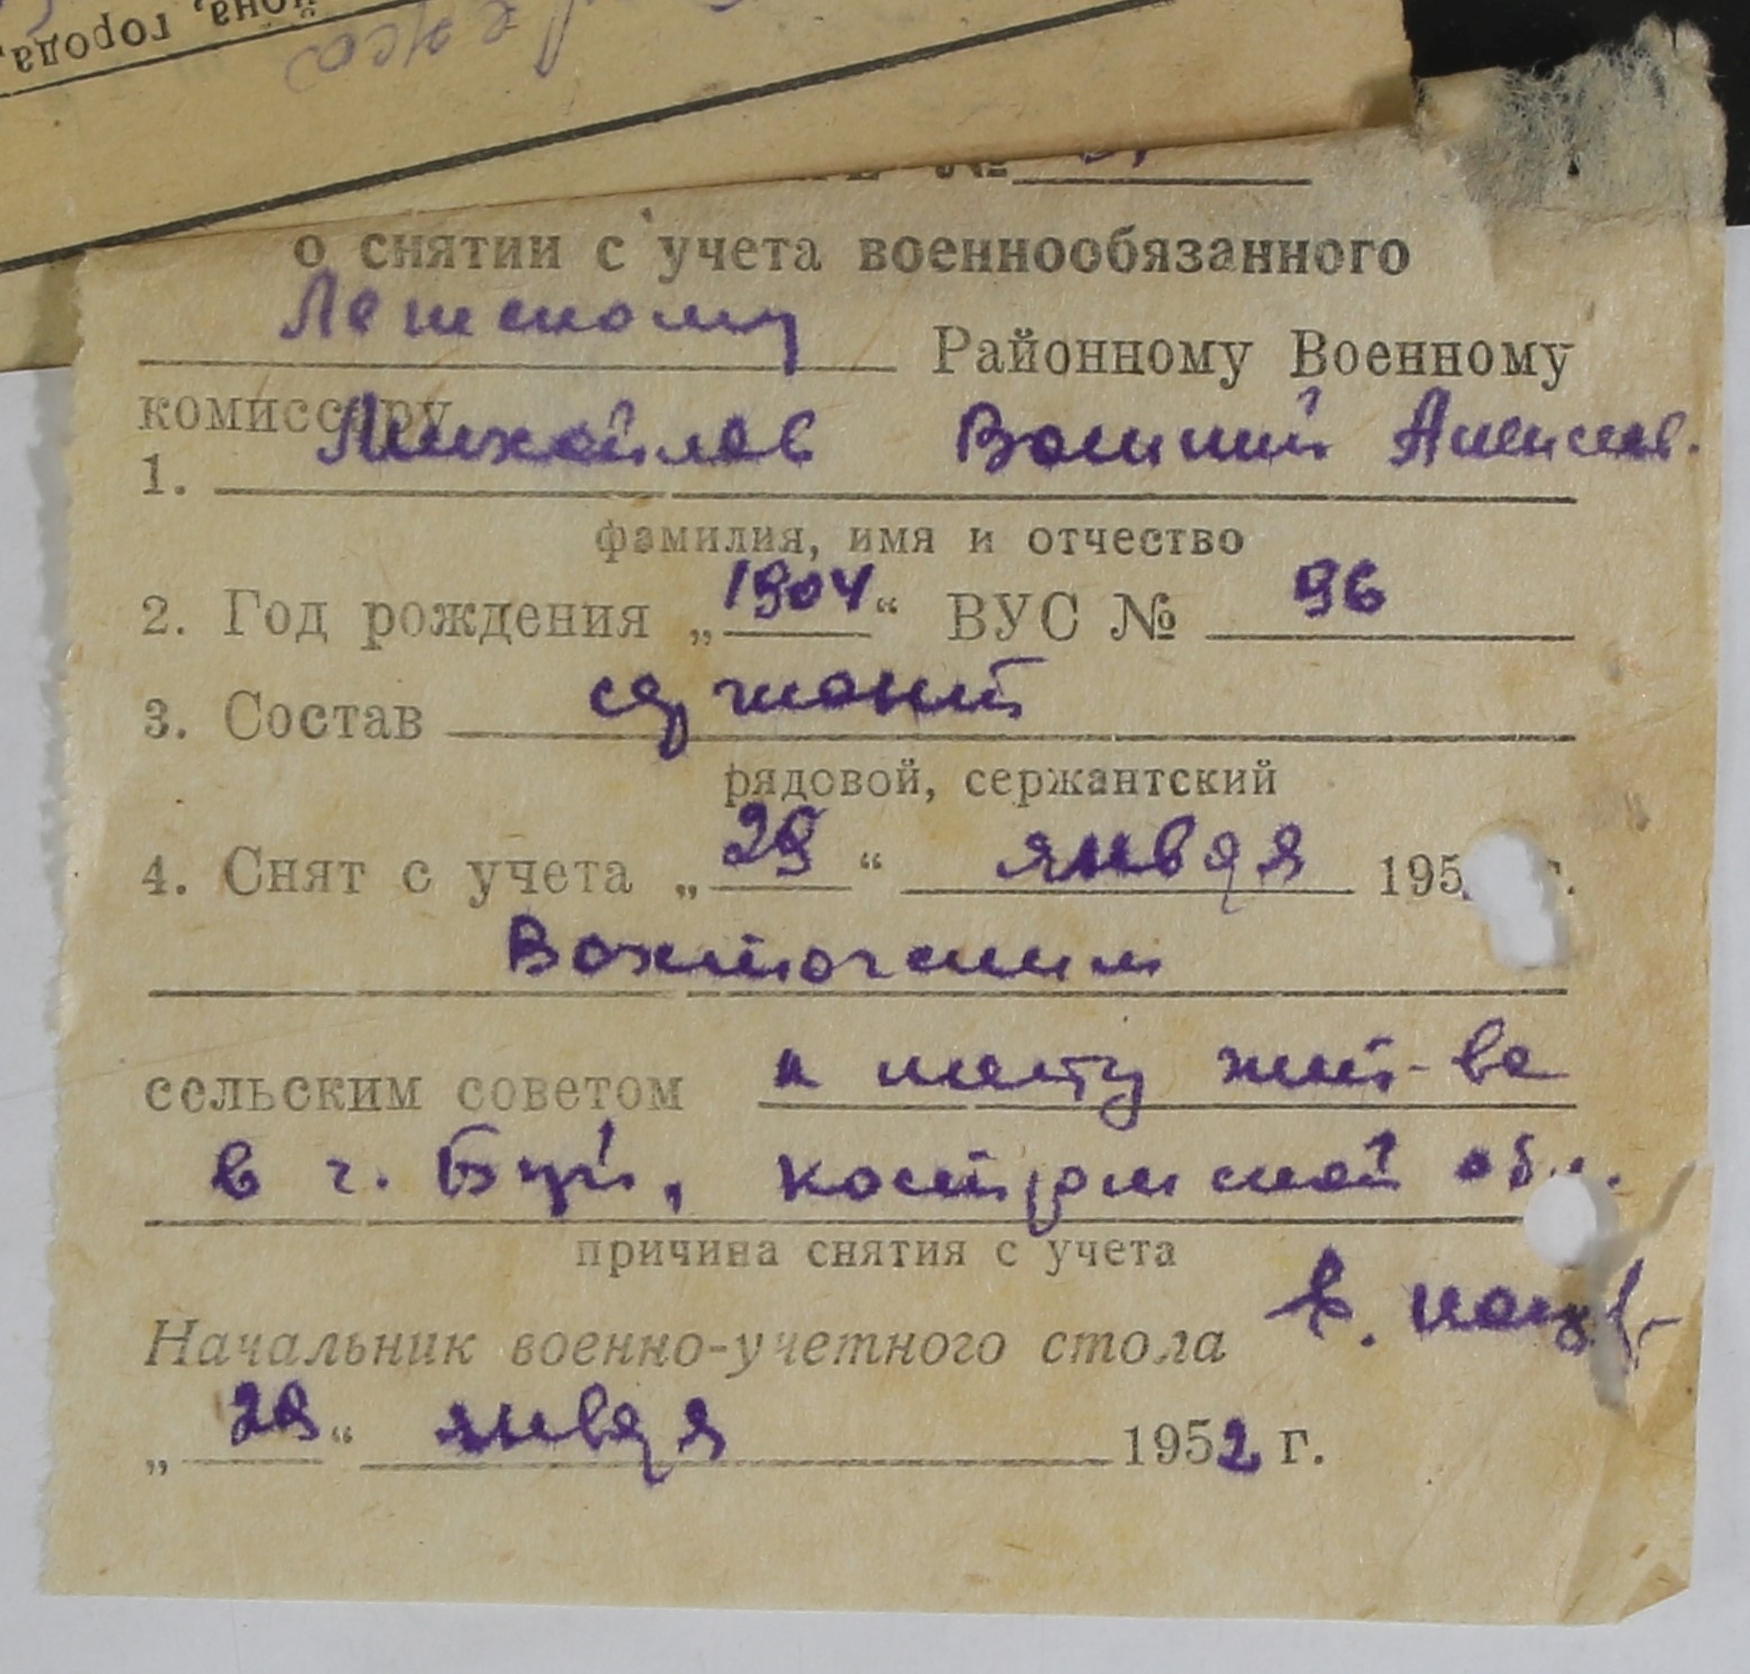 города,
о снятии с учета военнообязанного
Лежскому Районному Военному
комиссару
1. Михайлов Василий Алексеев.
фамилия, имя и отчество
2. Год рождения „1904“ ВУС № 96
3. Состав сержант
рядовой, сержантский
4. Снят с учета „29“ января 195 г.
Вохточским
сельским советом к месту жит-ва
в г. Буй, Костромской об
причина снятия с учета
Начальник военно-учетного стола
„29“ января 1952 г.